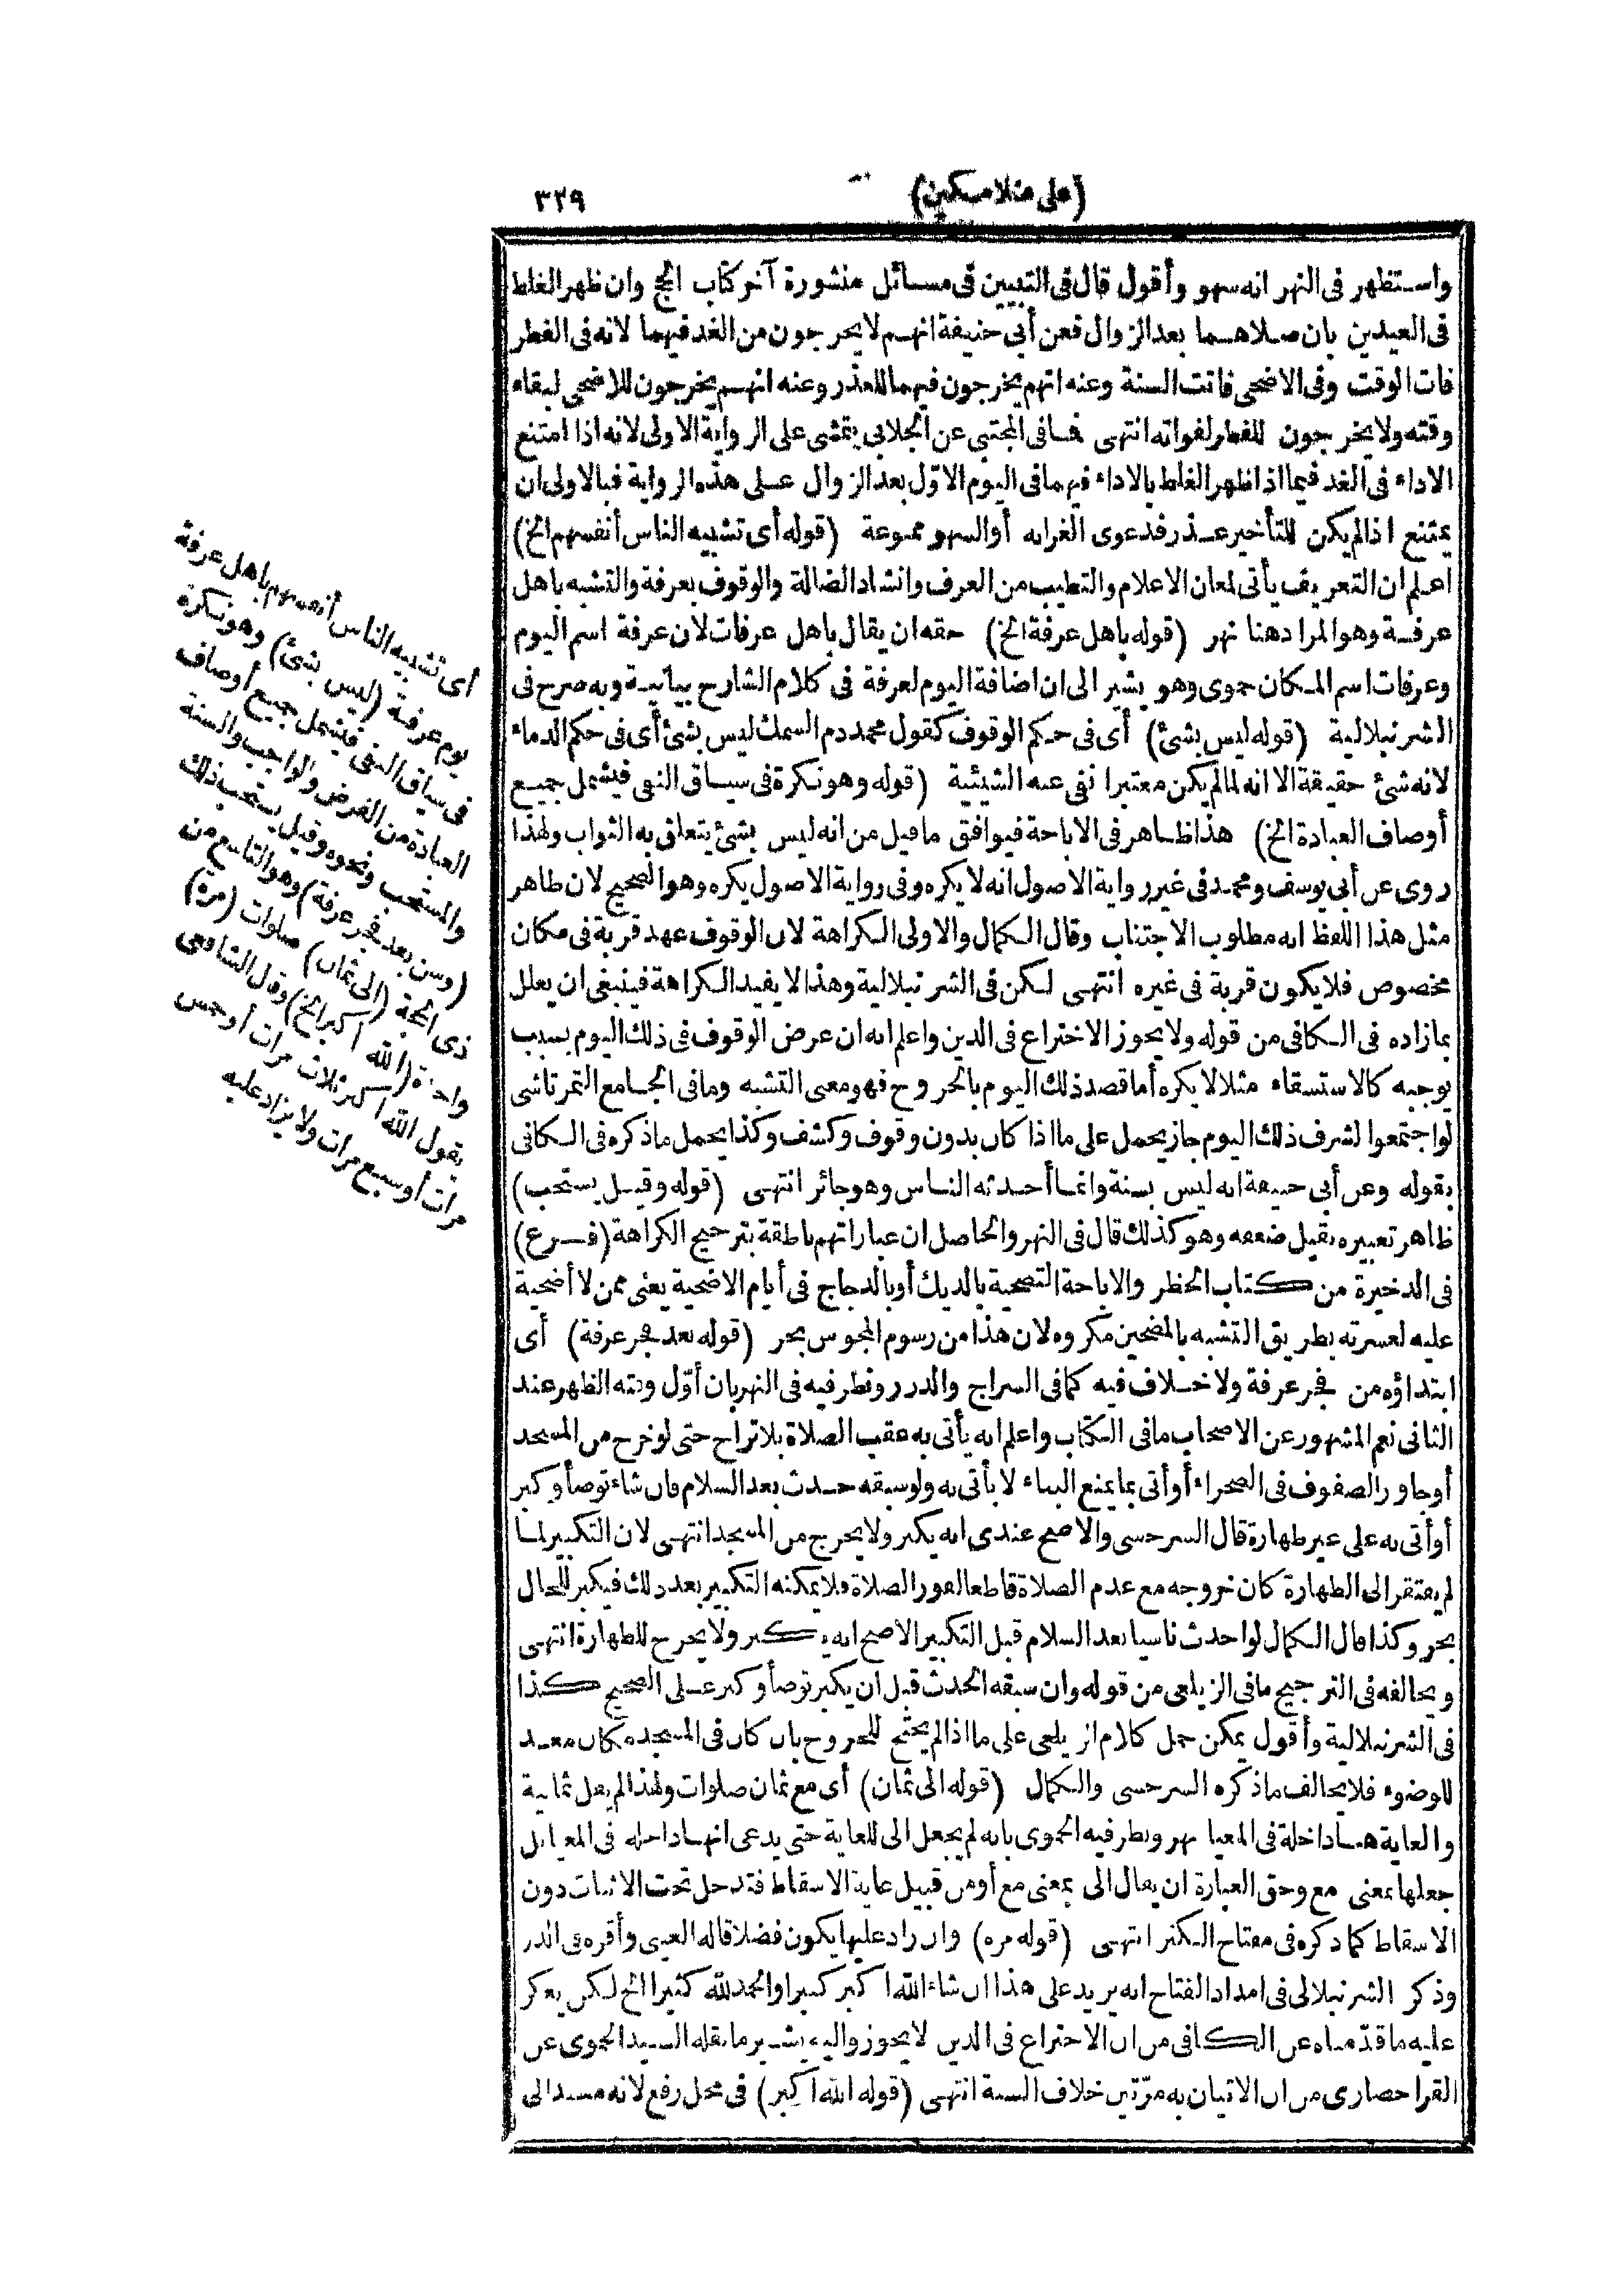 (على منلا مسكين)
٣٢٩
واستظهر فى النهر انه سهو وأقول قال فى التبيين فى مسائل منثورة آخر كتاب الحج وان ظهر الغلط
فى العيدين بان صلاهما بعد الزوال فعن أبى حنيفة انهم لا يخرجون من الغد فيهما لانه فى الفطر
فات الوقت وفى الاضحى فاتت السنة وعنه انهم يخرجون فيهما للعذر وعنه انهم يخرجون للاضحى لبقاء
وقته ولا يخرجون للفطر لفواته انتهى فما فى المجتبى عن الجلابى يتمشى على الرواية الاولى لانه اذا امتنع
الاداء فى الغد فيما اذا ظهر الغلط بالاداء فيهما فى اليوم الاوّل بعد الزوال على هذه الرواية فبالاولى ان
يمتنع اذا لم يكن للتأخير عذر فدعوى الغرابه أو السهو ممنوعة (قوله أى تشبيه الناس أنفسهم الخ)
اعلم ان التعريف يأتى لمعان الاعلام والتطيب من العرف وانشاد الضالة والوقوف بعرفة والتشبه باهل
عرفة وهو المراد هنا نهر (قوله باهل عرفة الخ) حقه ان يقال باهل عرفات لان عرفة اسم اليوم
وعرفات اسم المكان حموى وهو يشير الى ان اضافة اليوم لعرفة فى كلام الشارح بيانية وبه صرح فى
الشرنبلالية (قوله ليس بشئ) أى فى حكم الوقوف كقول محمد دم السمك ليس بشئ أى فى حكم الدماء
لانه شئ حقيقة الا انه لما لم يكن معتبرا نفى عنه الشيئية (قوله وهو نكرة فى سياق النفى فيشمل جميع
أوصاف العبادة الخ) هذا ظاهر فى الاباحة فيوافق ما قيل من انه ليس بشئ يتعلق به الثواب ولهذا
روى عن أبى يوسف ومحمد فى غير رواية الاصول انه لا يكره وفى رواية الاصول يكره وهو الصحيح لان ظاهر
مثل هذا اللفظ انه مطلوب الاجتناب وقال الكمال والاولى الكراهة لان الوقوف عهد قربة فى مكان
مخصوص فلا يكون قربة فى غيره انتهى لكن فى الشرنبلالية وهذا لا يفيد الكراهة فينبغى ان يعلل
بما زاده فى الكافى من قوله ولا يجوز الاختراع فى الدين واعلم انه ان عرض الوقوف فى ذلك اليوم بسبب
يوجبه كالاستسقاء مثلا لا يكره أما قصد ذلك اليوم بالخروج فهو معنى التشبه وما فى الجامع التمرتاشى
لو اجتمعوا لشرف ذلك اليوم جاز يحمل على ما اذا كان بدون وقوف وكشف وكذا يحمل ما ذكره فى الكافى
بقوله وعن أبى حنيفة انه ليس بسنة وانما أحدثه الناس وهو جائز انتهى (قوله وقيل يستحب)
ظاهر تعبيره بقيل ضعفه وهو كذلك قال فى النهر والحاصل ان عباراتهم ناطقة بترجيح الكراهة (فرع)
فى الذخيرة من كتاب الحظر والاباحة التضحية بالديك أو بالدجاج فى أيام الاضحية يعنى ممن لا أضحية
عليه لعسرته بطريق التشبه بالمضحين مكروه لان هذا من رسوم المجوس بحر (قوله بعد فجر عرفة) أى
ابتداؤه من فجر عرفة ولا خلاف فيه كما فى السراج والدرر ونظر فيه فى النهر بان أوّل وقته الظهر عند
الثانى نعم المشهور عن الاصحاب ما فى الكتاب واعلم انه يأتى به عقب الصلاة بلا تراخ حتى لو خرج من المسجد
أو جاوز الصفوف فى الصحراء أو أتى بما يمنع البناء لا يأتى به ولو سبقه حدث بعد السلام فان شاء توضأ وكبر
أو أتى به على غير طهارة قال السرخسى والاصح عندى انه يكبر ولا يخرج من المسجد انتهى لان التكبير لما
لم يفتقر الى الطهارة كان خروجه مع عدم الصلاة قاطعا لفور الصلاة فلا يمكنه التكبير بعد ذلك فيكبر للحال
بحر وكذا قال الكمال لو احدث ناسيا بعد السلام قبل التكبير الاصح انه يكبر ولا يخرج للطهارة انتهى
ويخالفه فى الترجيح ما فى الزيلعى من قوله وان سبقه الحدث قبل ان يكبر توضأ وكبر على الصحيح كذا
فى الشرنبلالية وأقول يمكن حمل كلام الزيلعى على ما اذا لم يحتج للخروج بان كان فى المسجد مكان معد
للوضوء فلا يخالف ما ذكره السرخسى والكمال (قوله الى ثمان) أى مع ثمان صلوات ولهذا لم يقل ثمانية
والغاية هنا داخلة فى المغيا نهر ونظر فيه الحموى بانه لم يجعل الى للغاية حتى يدعى انها داخلة فى المغيا بل
جعلها بمعنى مع وحق العبارة ان يقال الى بمعنى مع أو من قبيل غاية الاسقاط فتدخل تحت الاثبات دون
الاسقاط كما ذكره فى مفتاح الكنز انتهى (قوله مره) وان زاد عليها يكون فضلا قاله العينى وأقره فى الدر
وذكر الشرنبلالى فى امداد الفتاح انه يزيد على هذا ان شاء الله اكبر كبيرا والحمد لله كثيرا الخ لكن يعكر
عليه ما قدّمناه عن الكافى من ان الاختراع فى الدين لا يجوز واليه يشير ما نقله السيد الحموى عن
القراحصارى من ان الاتيان به مرّتين خلاف السنة انتهى (قوله الله اكبر) فى محل رفع لانه مسند الى
أى تشبيه الناس أنفسهم باهل عرفة
يوم عرفة (ليس بشئ) وهو نكرة
فى سياق النفى فيشمل جميع أوصاف
العبادة من الفرض والواجب والسنة
والمستحب ونحوه وقيل يستحب ذلك
(وسن بعد فجر عرفة) وهو التاسع من
ذى الحجة (الى ثمان) صلوات (مرة)
واحدة (الله اكبر الخ) وقال الشافعى
يقول الله اكبر ثلاث مرات أو خمس
مرات أو سبع مرات ولا يزاد عليه